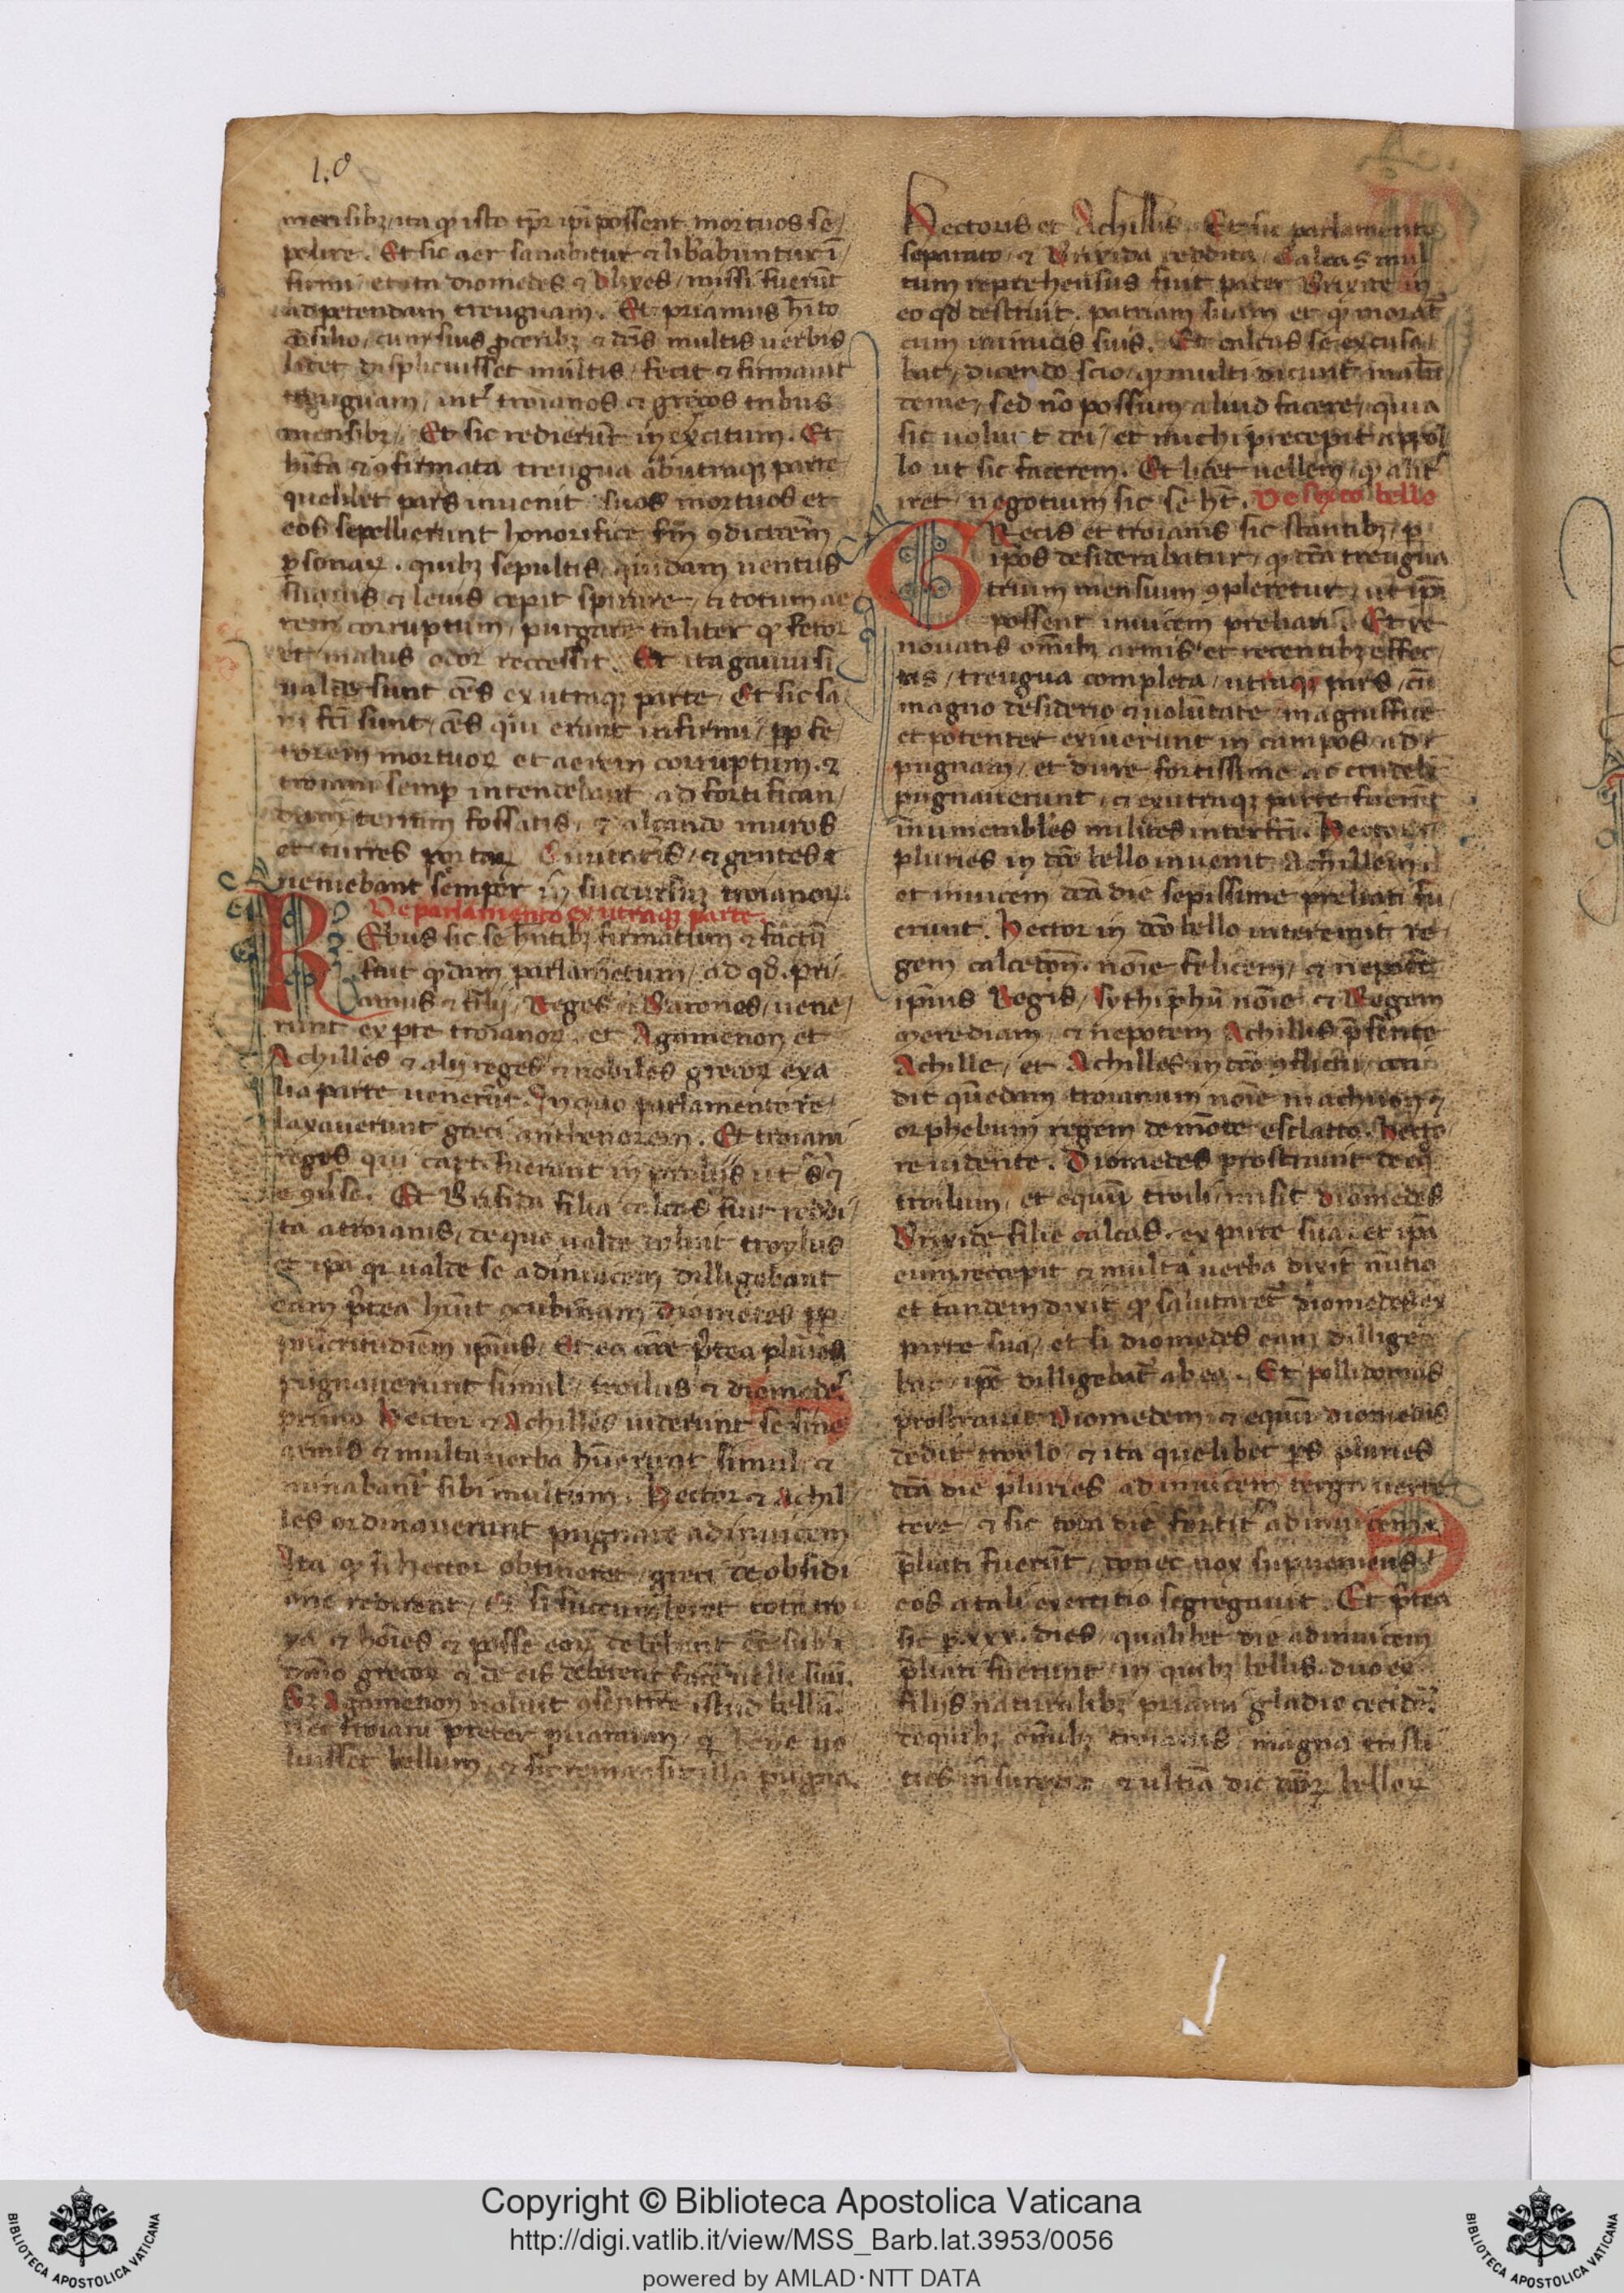 1.8
mensibꝫ, ita qͥ isto tp̄r ip̄i possent mortuos se/
pelire. Et sic aer sanabitur ⁊ libabuntur ī/
firmi, etem diomedes ⁊ Ulixes, missi fuerūt
ad petendam treuguam. Et priamus hīto
cōsilio, cum suis ꝓceribꝫ ⁊ dc̄is multis uerbis
licet displicuisset multis, fecit ⁊ firmauit
treuguam, intͬ troianos ⁊ grecos tribus
mensibꝫ. Et sic redierūt in exc̄itum. Et
hīta ⁊ ꝯfirmata treugua ab utraqꝫ parte
quelibet pars inuenit suos mortuos et
eos sepellierunt honorifice fm̄ ꝯdictōem
ꝑsonaꝝ. quibꝫ sepultis, quidam uentus
suauis ⁊ leuis cepit spirare, ⁊ totum ae
rem corruptum, purgare taliter qͥ fetor
et malus odor reccessit. Et ita gauuisi
ualde sunt oēs ex utraqꝫ parte, Et sic sa
ni fc̄i sunt, oēs qui erant infirmi, ꝓp fe
torem mortuoꝝ et aerem corruptum. ⁊
troiani semꝑ intendebant ad fortifican/
dum terram fossatis, ⁊ alzando muros
et turres portaꝝ Ciuitatis, ⁊ gentes
ueniebant semper in succursuꝫ troianoꝝ.
De parlamento ex utraqꝫ parte.
REbus sic se hntibꝫ firmatum ⁊ factū
fuit qͦdam parlametum, ad qd̄. pri/
amus ⁊ filij, Reges ⁊ Barones, uene/
runt ex pte troianoꝝ. et Agamenon et
Achilles ⁊ alij reges ⁊ nobiles grecoꝝ ex a
lia parte uenerūt. In quo parlamento re/
laxauerunt greci anthenorem. Et troiani
reges qui capti fuerant in prelijs ut
Et Brisida filia calcas fuit reddi/
ta a troianis, de quo ualde doluit troylus
et ipa qr ualde se adinuicem dilligebant
eam p̄tea hūit ꝯcubinam diomedes ꝓp
pulcritudiēm ip̄ius, Et ea p̄tea pluries
pugnauerunt simul, troilus ⁊ diomedes
primo Hector ⁊ Achilles uiderunt se sine
armis ⁊ multa uerba hūerunt simul, ⁊
minabantͬ sibi multum. Hector ⁊ Achil/
les ordinauerunt pugnare adinuicem
Ita qͥ si hector obtineret, greci de obsidi
one redirent, Et si succumberet tota tro
ya ⁊ hoīes ⁊ posse eoꝝ debebant eē sub
dn̄io grecoꝝ ⁊ de eis deberent facē uelle suū.
Sꝫ Agamenon noluit ꝯsentire istud bellū.
nec troiani preter priamum, qͥ bene uo
luisset bellum, ⁊ sic remansit illa pugna.
Hectoris et Achillis. Et sic parlamento
separato, ⁊ Brixida reddita, Calcas mul
tum reprehensus fuit pater Brixide in
eo qd̄ destruit. patriam suam et qͥ morat̄
cum inimicis suis. Et calcas se excusa/
bat, dicendo scio, qͥ multi dicunt malū
de me, sed nō possum aliud facere, quia
sic uoluit dei, et michi precepit appol
lo ut sic facerem. Et licet uellem, qͥ alitͬ
iret, negotium sic se ht̄. De sexto bello
GRecis et troianis sic stantibꝫ, ꝑ
ip̄os desiderabatur, qͥ dc̄a treugua
trium mensium ꝯpleretur, ut ip̄i
possent inuicem preliari. Et re
nouatis om̄ibꝫ armis et recentibꝫ effec/
tis, treugua completa, utraqꝫ pars, cū
magno desiderio ⁊ uolūtate, magnifice
et potenter exiuerunt in campos ad
pugnam, et dure fortissime ac crudelr̄
pugnauerunt, ⁊ ex utraqꝫ parte fuerūt
inumerabiles milites interfc̄i. Hector
pluries in dc̄o bello inuenit Achillem
et inuicem dc̄a die sepissime preliati fu/
erunt. Hector in dc̄o bello interemit re/
gem calcedon̄. noīe felicem, ⁊ nepotē
ip̄ius Regis, sythiphū noīe ⁊ Regem
merediam, ⁊ nepotem Achillis p̄sente
Achille, et Achilles in dc̄o ꝯflictu, occi
dit quēdam troianum noīe machaon ⁊
orphebum regem de mōte esclatto. Hecto
re uidente. Diomedes prostrauit de eqͦ
troilum, et equū troili, misit diomedes
Brixide filie calcas, ex parte sua. et ip̄a
eum reccepit ⁊ multa uerba dixit nūtio
et tandem dixit qͥ salutaret diomedes ex
parte sua, et si diomedes eam dillige
bat, ip̄e dilligebatͬ ab ea. Et pollidomas
prostrauit Diomedem, ⁊ equū diomedis
dedit troylo, ⁊ ita quelibet ps pluries
dc̄a die pluries adinuicem terga uerte
tere, ⁊ sic tota die fortitͬ adinuicem
p̄liati fuerūt, donec nox supueniens
eos a tali exercitio segregauit. Et p̄tea
sic ꝑ. xxx. dies, qualibet die adinuicem
p̄liati fuerunt, in quibꝫ bellis. duo ex
filijs naturalibꝫ priami gladio cecider̄.
de quibꝫ om̄ibꝫ troianis, magna tristi
ties insurrexit, ⁊ ultīa die belloꝝ
Copyright © Biblioteca Apostolica Vaticana
http://digi.vatlib.it/view/MSS_Barb.lat.3953/0056
powered by AMLAD·NTT DATA
BIBLIOTECA APOSTOLICA VATICANA
BIBLIOTECA APOSTOLICA VATICANA